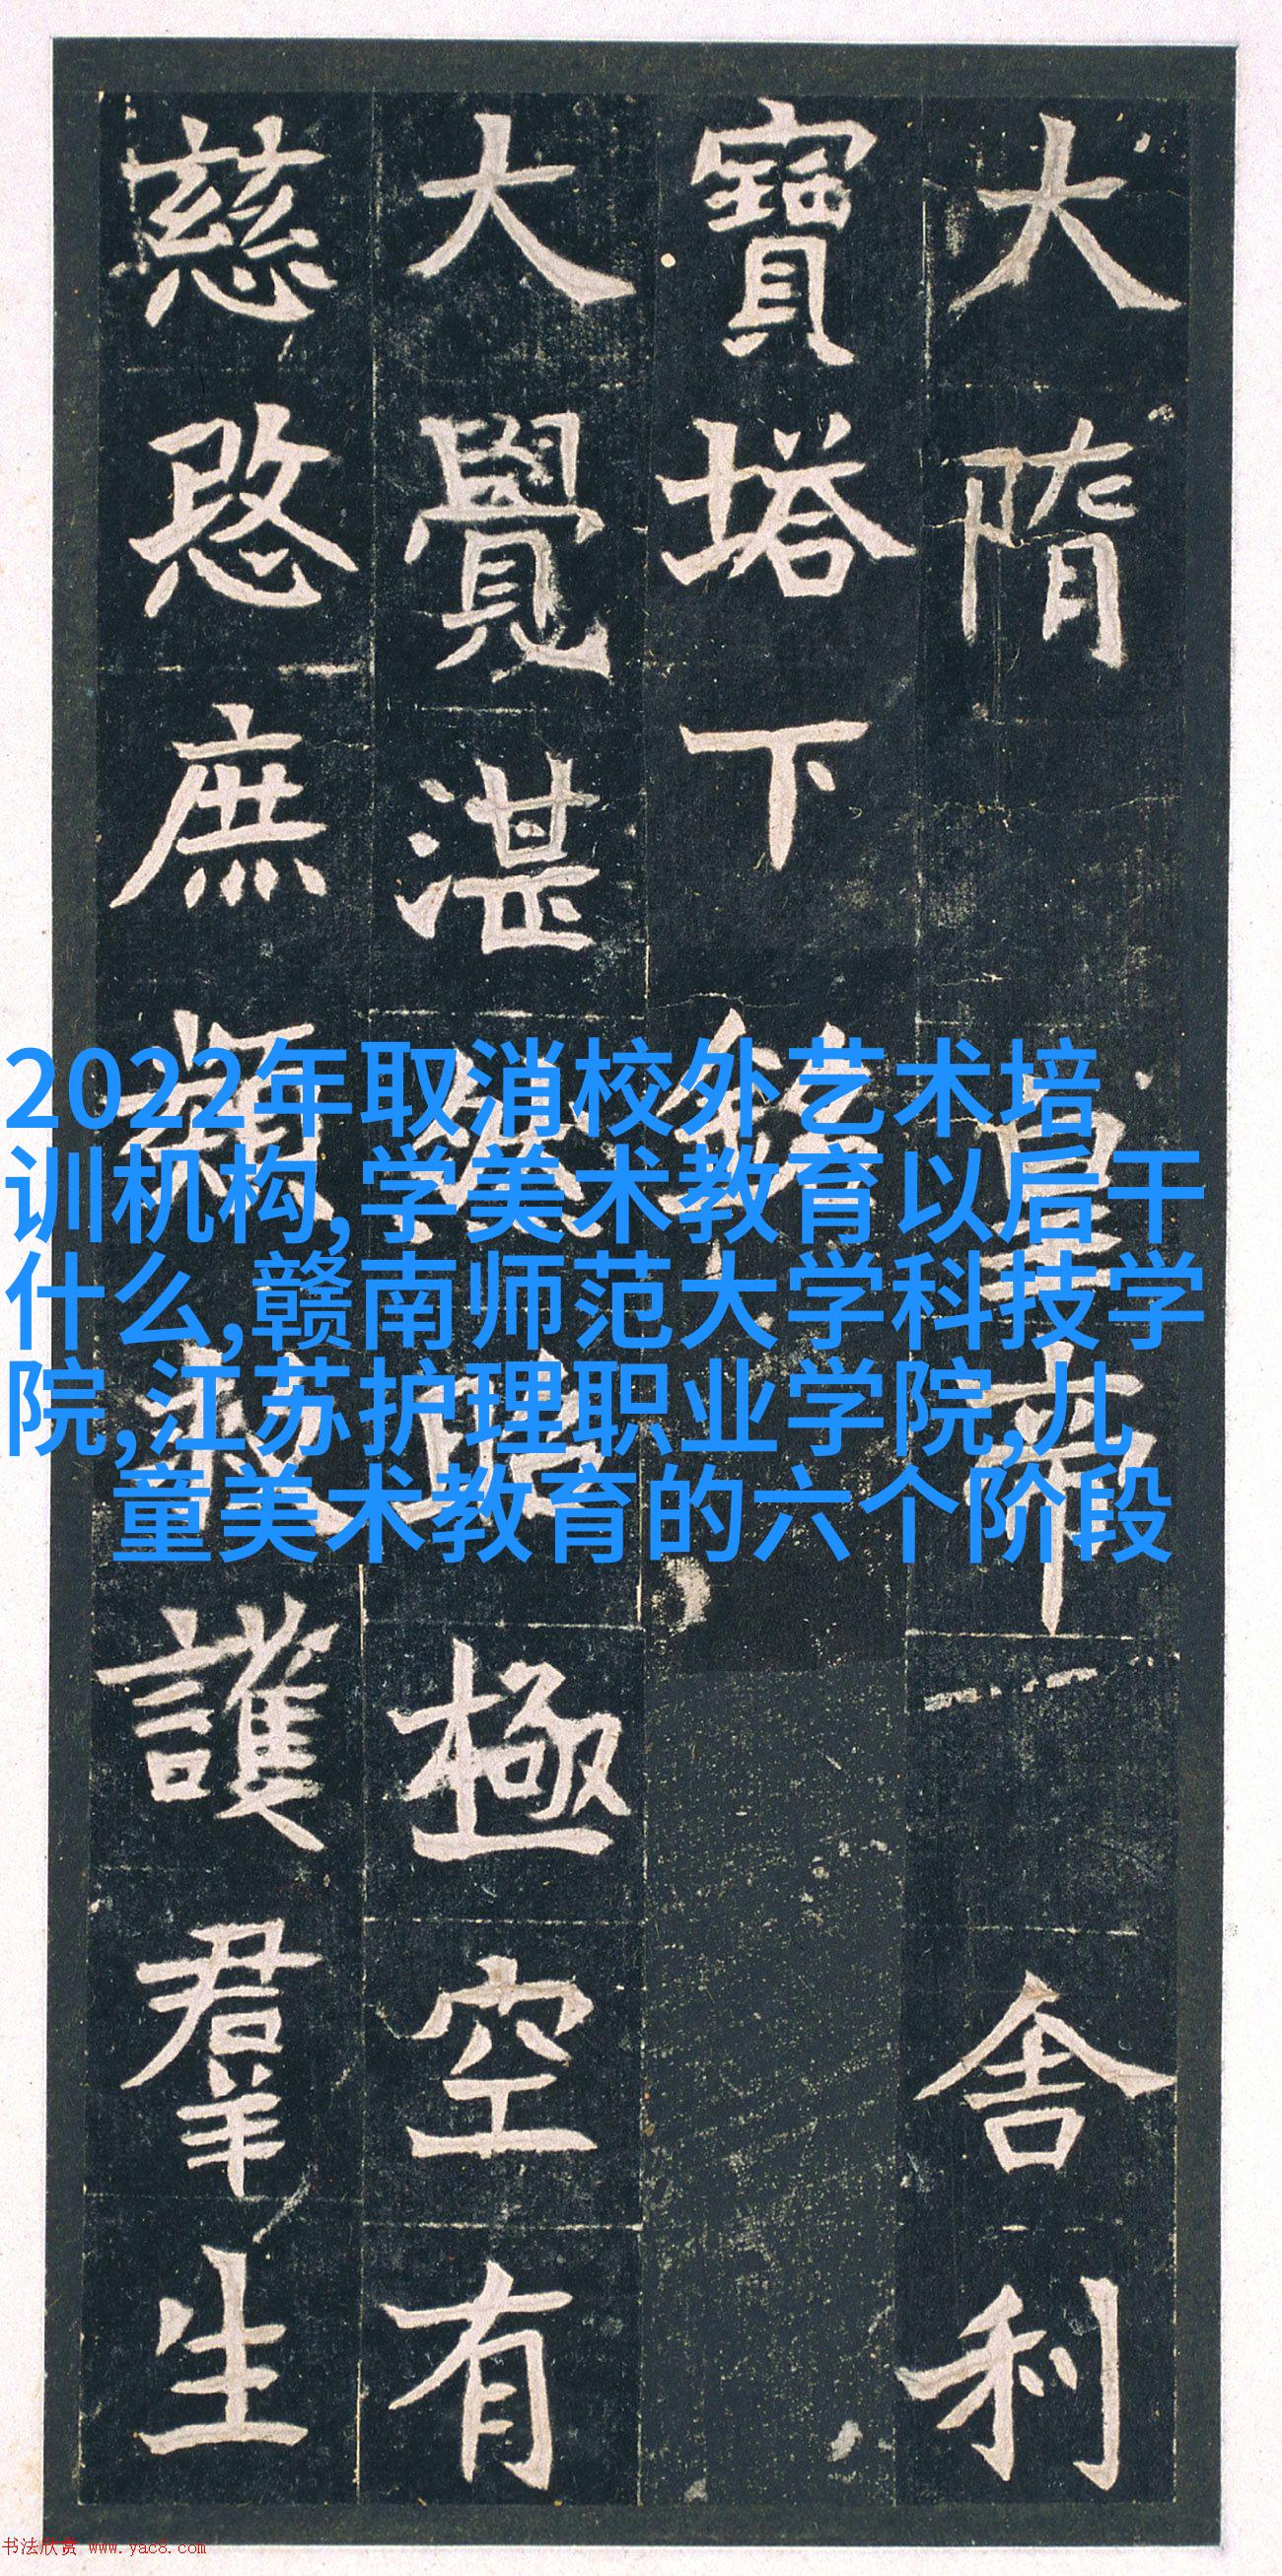 大隋皇帝舍利
寶塔下銘
大覺湛然昭極空有
慈愍庶類救護羣生
2022年取消校外艺术培
训机构,学美术教育以后干
什么,赣南师范大学科技学
院,江苏护理职业学院,儿
童美术教育的六个阶段
书法欣赏 www.yac8.com